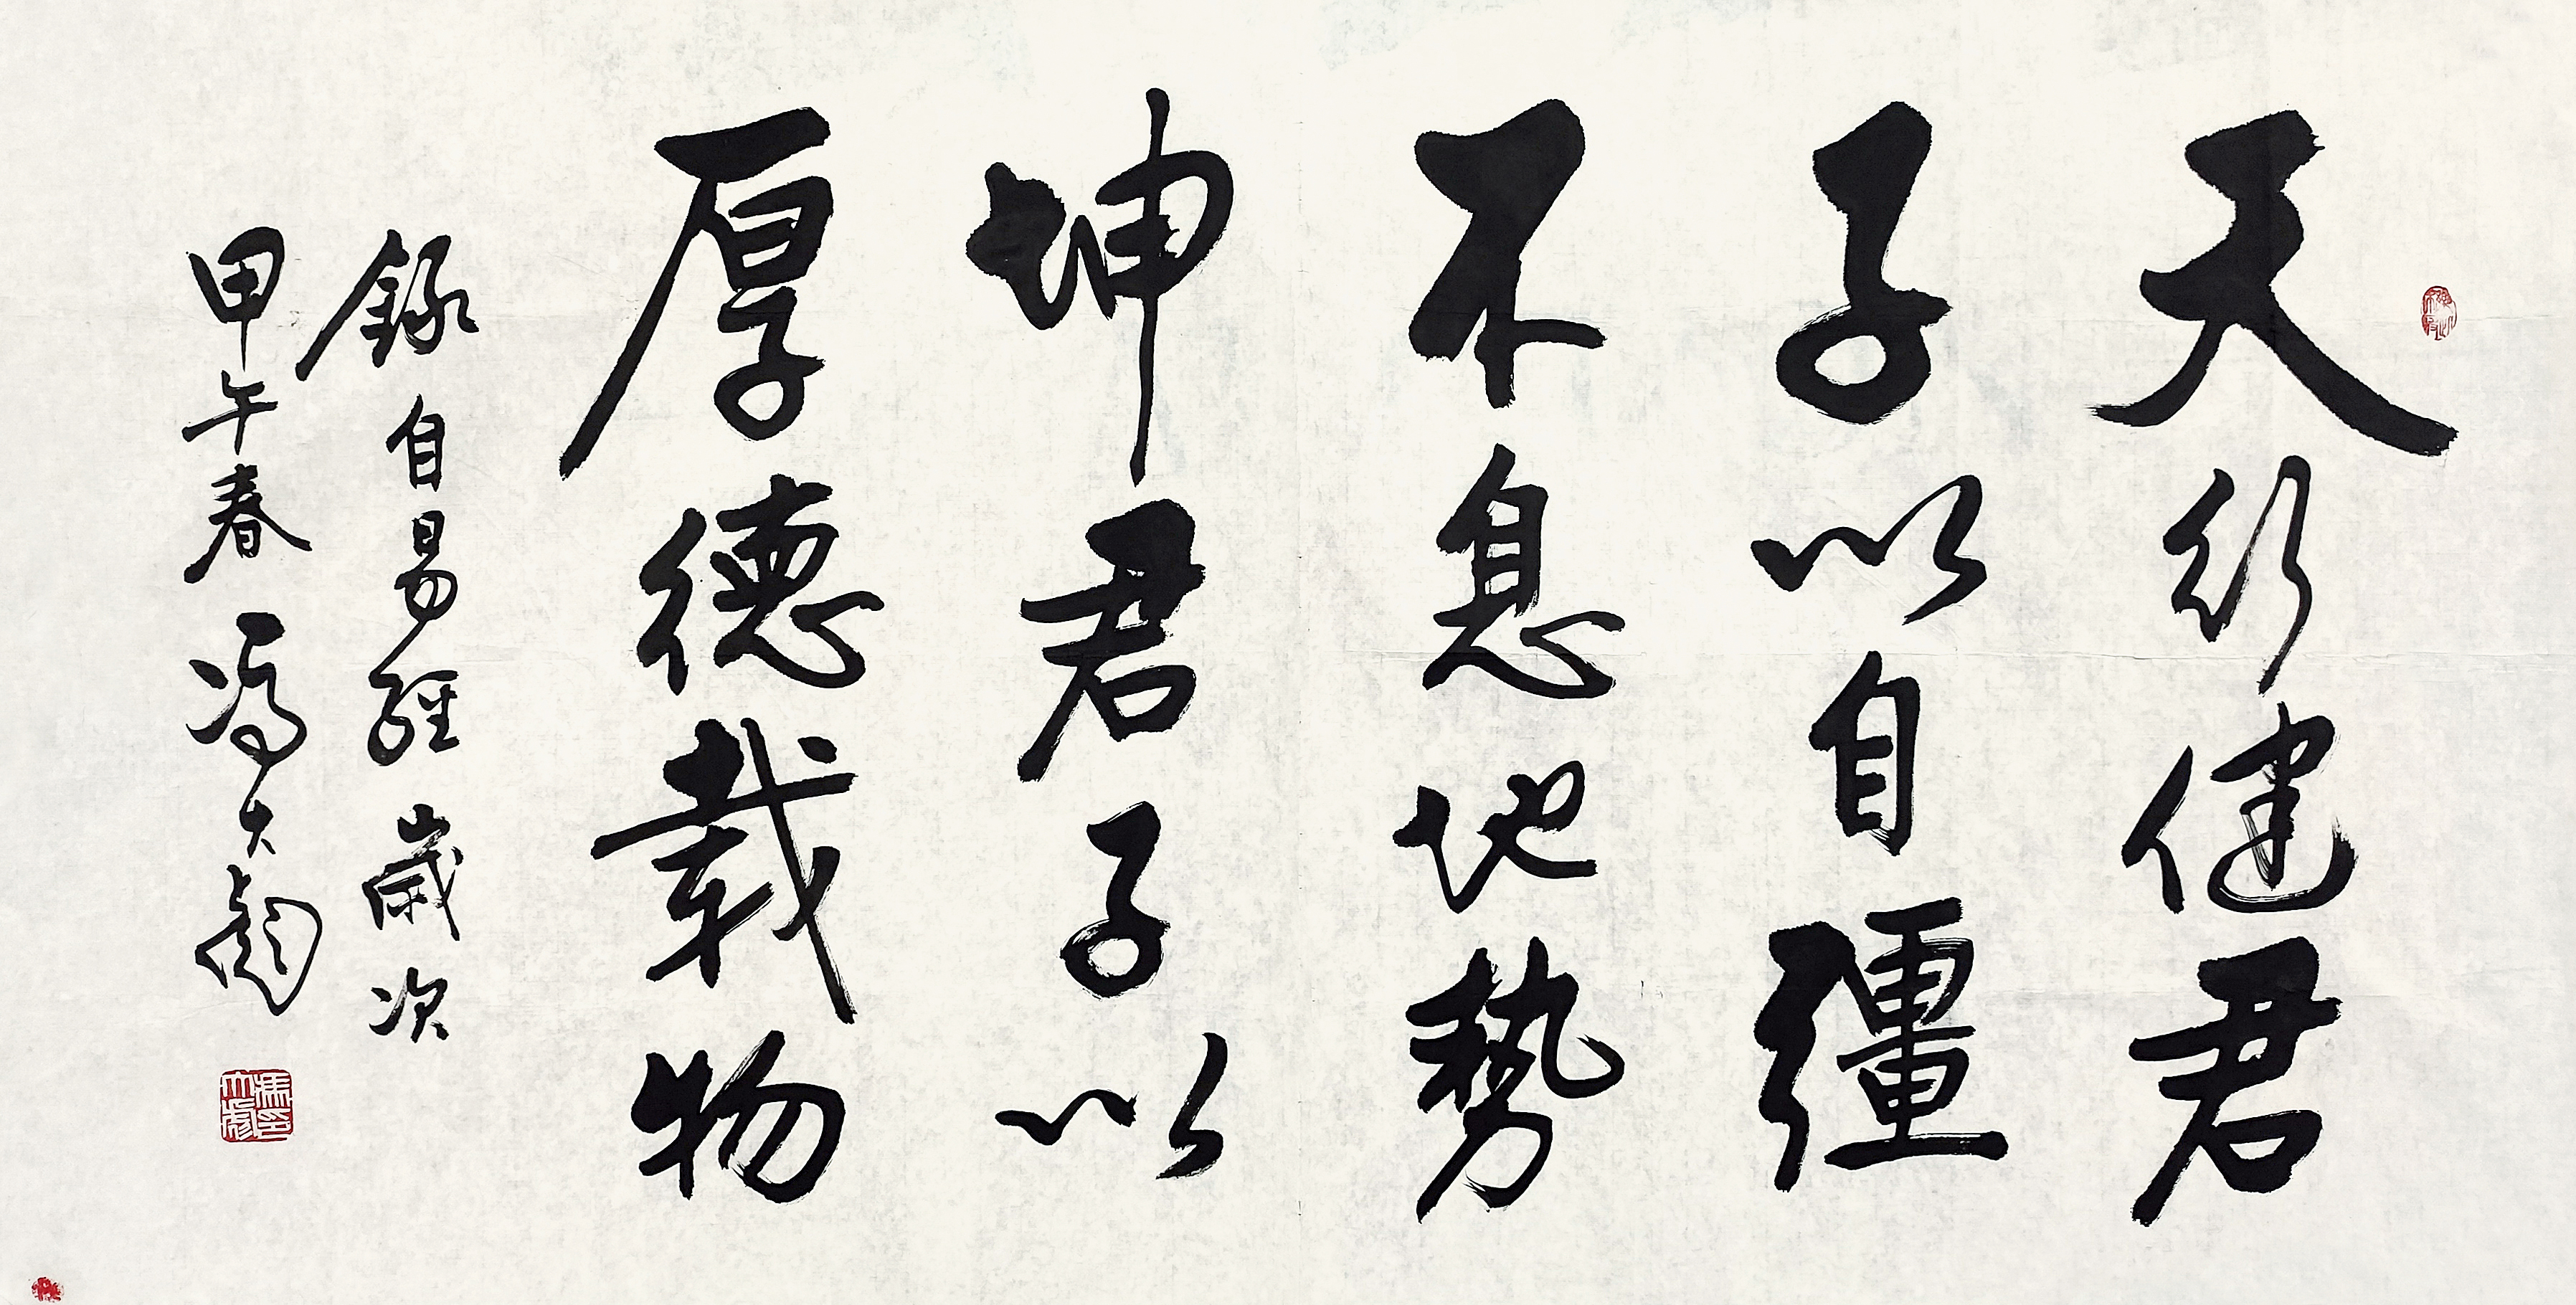 天行健君
子以自彊
不息地勢
坤君子以
厚德載物
錄自易經歲次
甲午春馮大彪